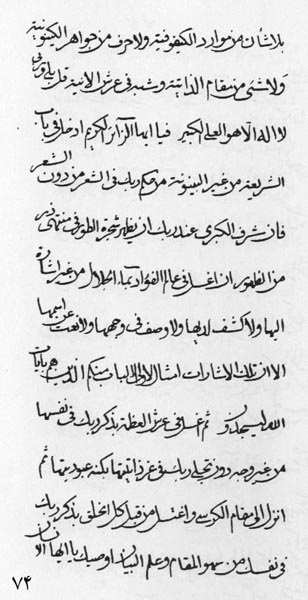 بلا شأن من موارد الكيفوفية ولا حرف من جواهر الكينونية
ولا شئ من مقام الذاتية و شبه فى عرش الانية قل بلى وربى
لا اله الا هو العلى الكبير فيا ايها الزائر الكريم ادخل فى باب
الشريعة من غير البينونة من حكم ربك فى الشعر من دون الشعر
فان شرف الكبرى عند ربك ان يظهر شجرة الطور فى منتهى
من الظهور ان اغسل فى عالم الفؤاد بماء الجلال من غير اشارة
اليها ولا كشف لديها ولا وصف فى وجهها ولا نعت عن اسمها
الا ان تلك الاشارات امثال لاولى الالباب منكم الذين هم بايات
الله ليسجدون ثم غسل فى عرش العظمة بذكر ربك فى نفسها
من غير وجه دون تجلى ربك فى عز ذاتيتها بكنه عبوديتها ثم
انزل الى مقام الكرسى واغتسل من قبل كل الخلق بذكر ربك
فى نفسك من سمو المقام وعلم البيان اوصيك يا ايها الانسان
٧۴